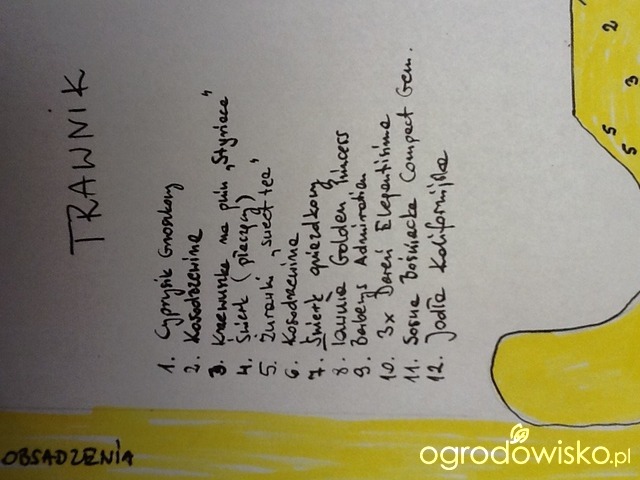 TRAWNIK
1. Cyprysik Groszkowy
2. Kosodrzewina
3. Krzewuszka na pniu „Styriaca"
4. Świerk (płaczący)
5. Żurawki „sweet tea"
6. Kosodrzewina
7. Świerk gniazdkowy
8. Tawuła Golden Princess
9. Berberys Admiration
10. 3x Dereń Elegantisima
11. Sosna Bośniacka Compact Gem.
12. Jodła Kalifornijska
2
3
5
5
OBSADZENIA
ogrodowisko.pl